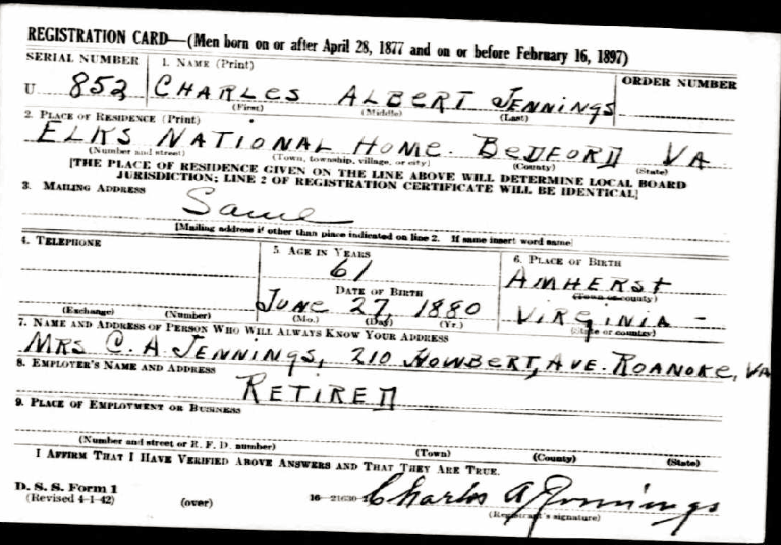 REGISTRATION CARD—(Men born on or after April 28, 1877 and on or before February 16, 1897)
SERIAL NUMBER 1. NAME (Print) ORDER NUMBER
U 852 CHARLES ALBERT JENNINGS
(First) (Middle) (Last)
2. PLACE OF RESIDENCE (Print)
ELKS NATIONAL HOME. BEDFORD VA
(Number and street) (Town, township, village, or city) (County) (State)
[THE PLACE OF RESIDENCE GIVEN ON THE LINE ABOVE WILL DETERMINE LOCAL BOARD
JURISDICTION; LINE 2 OF REGISTRATION CERTIFICATE WILL BE IDENTICAL]
3. MAILING ADDRESS
Same
[Mailing address if other than place indicated on line 2. If same insert word same]
4. TELEPHONE 5. AGE IN YEARS 6. PLACE OF BIRTH
61 AMHERST
DATE OF BIRTH (Town or county)
JUNE 27, 1880 VIRGINIA -
(Exchange) (Number) (Mo.) (Day) (Yr.) (State or country)
7. NAME AND ADDRESS OF PERSON WHO WILL ALWAYS KNOW YOUR ADDRESS
MRS C. A JENNINGS, 210 HOWBERT, AVE. ROANOKE, VA
8. EMPLOYER'S NAME AND ADDRESS
RETIRED
9. PLACE OF EMPLOYMENT OR BUSINESS
(Number and street or R. F. D. number) (Town) (County) (State)
I AFFIRM THAT I HAVE VERIFIED ABOVE ANSWERS AND THAT THEY ARE TRUE.
D. S. S. Form 1
(Revised 4-1-42) (over) 16—21630 Charles A Jennings
(Registrant's signature)